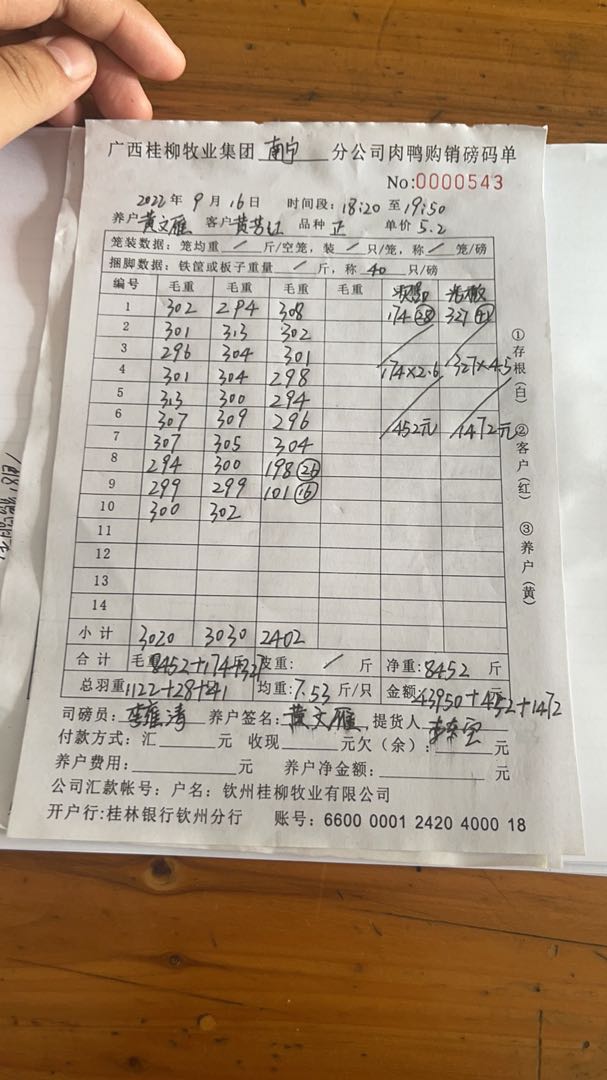 广西桂柳牧业集团 南宁 分公司肉鸭购销磅码单
No:0000543
2022年9月16日 时间段: 18:20 至 19:50
养户 黄文雁 客户 黄芳红 品种 正 单价 5.2
笼装数据: 笼均重 / 斤/空笼, 装 / 只/笼, 称 / 笼/磅
捆脚数据: 铁筐或板子重量 / 斤, 称 40 只/磅
编号 毛重 毛重 毛重 毛重
1 302 294 308 174 (28) 327 (41)
2 301 313 302
3 296 304 301 174×2.6 327×4.5
4 301 304 298
5 313 300 294
6 307 309 296 452元 1472元
7 307 305 304
8 294 300 198 (26)
9 299 299 101 (16)
10 300 302
11
12
13
14
小计 3020 3030 2402
合计 毛重: 8452+174+327 斤 皮重: / 斤 净重: 8452 斤
总羽重 1122+28+41 均重: 7.53 斤/只 金额: 43950+452+1472
司磅员: 养户签名: 黄文雁 提货人
付款方式: 汇 元 收现 元欠(余): 元
养户费用: 元 养户净金额: 元
公司汇款帐号: 户名: 钦州桂柳牧业有限公司
开户行:桂林银行钦州分行 账号: 6600 0001 2420 4000 18
①存根(白) ②客户(红) ③养户(黄)